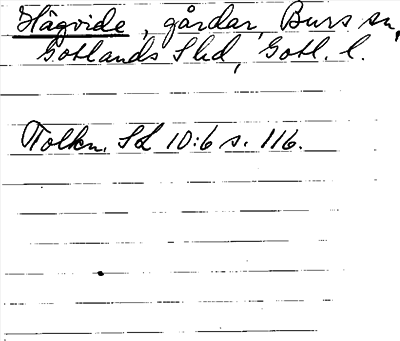 Hägvide, gårdar, Burs sn,
Gotlands S hd, Gotl. l.
Tolkn. Sd 10:6 s. 116.